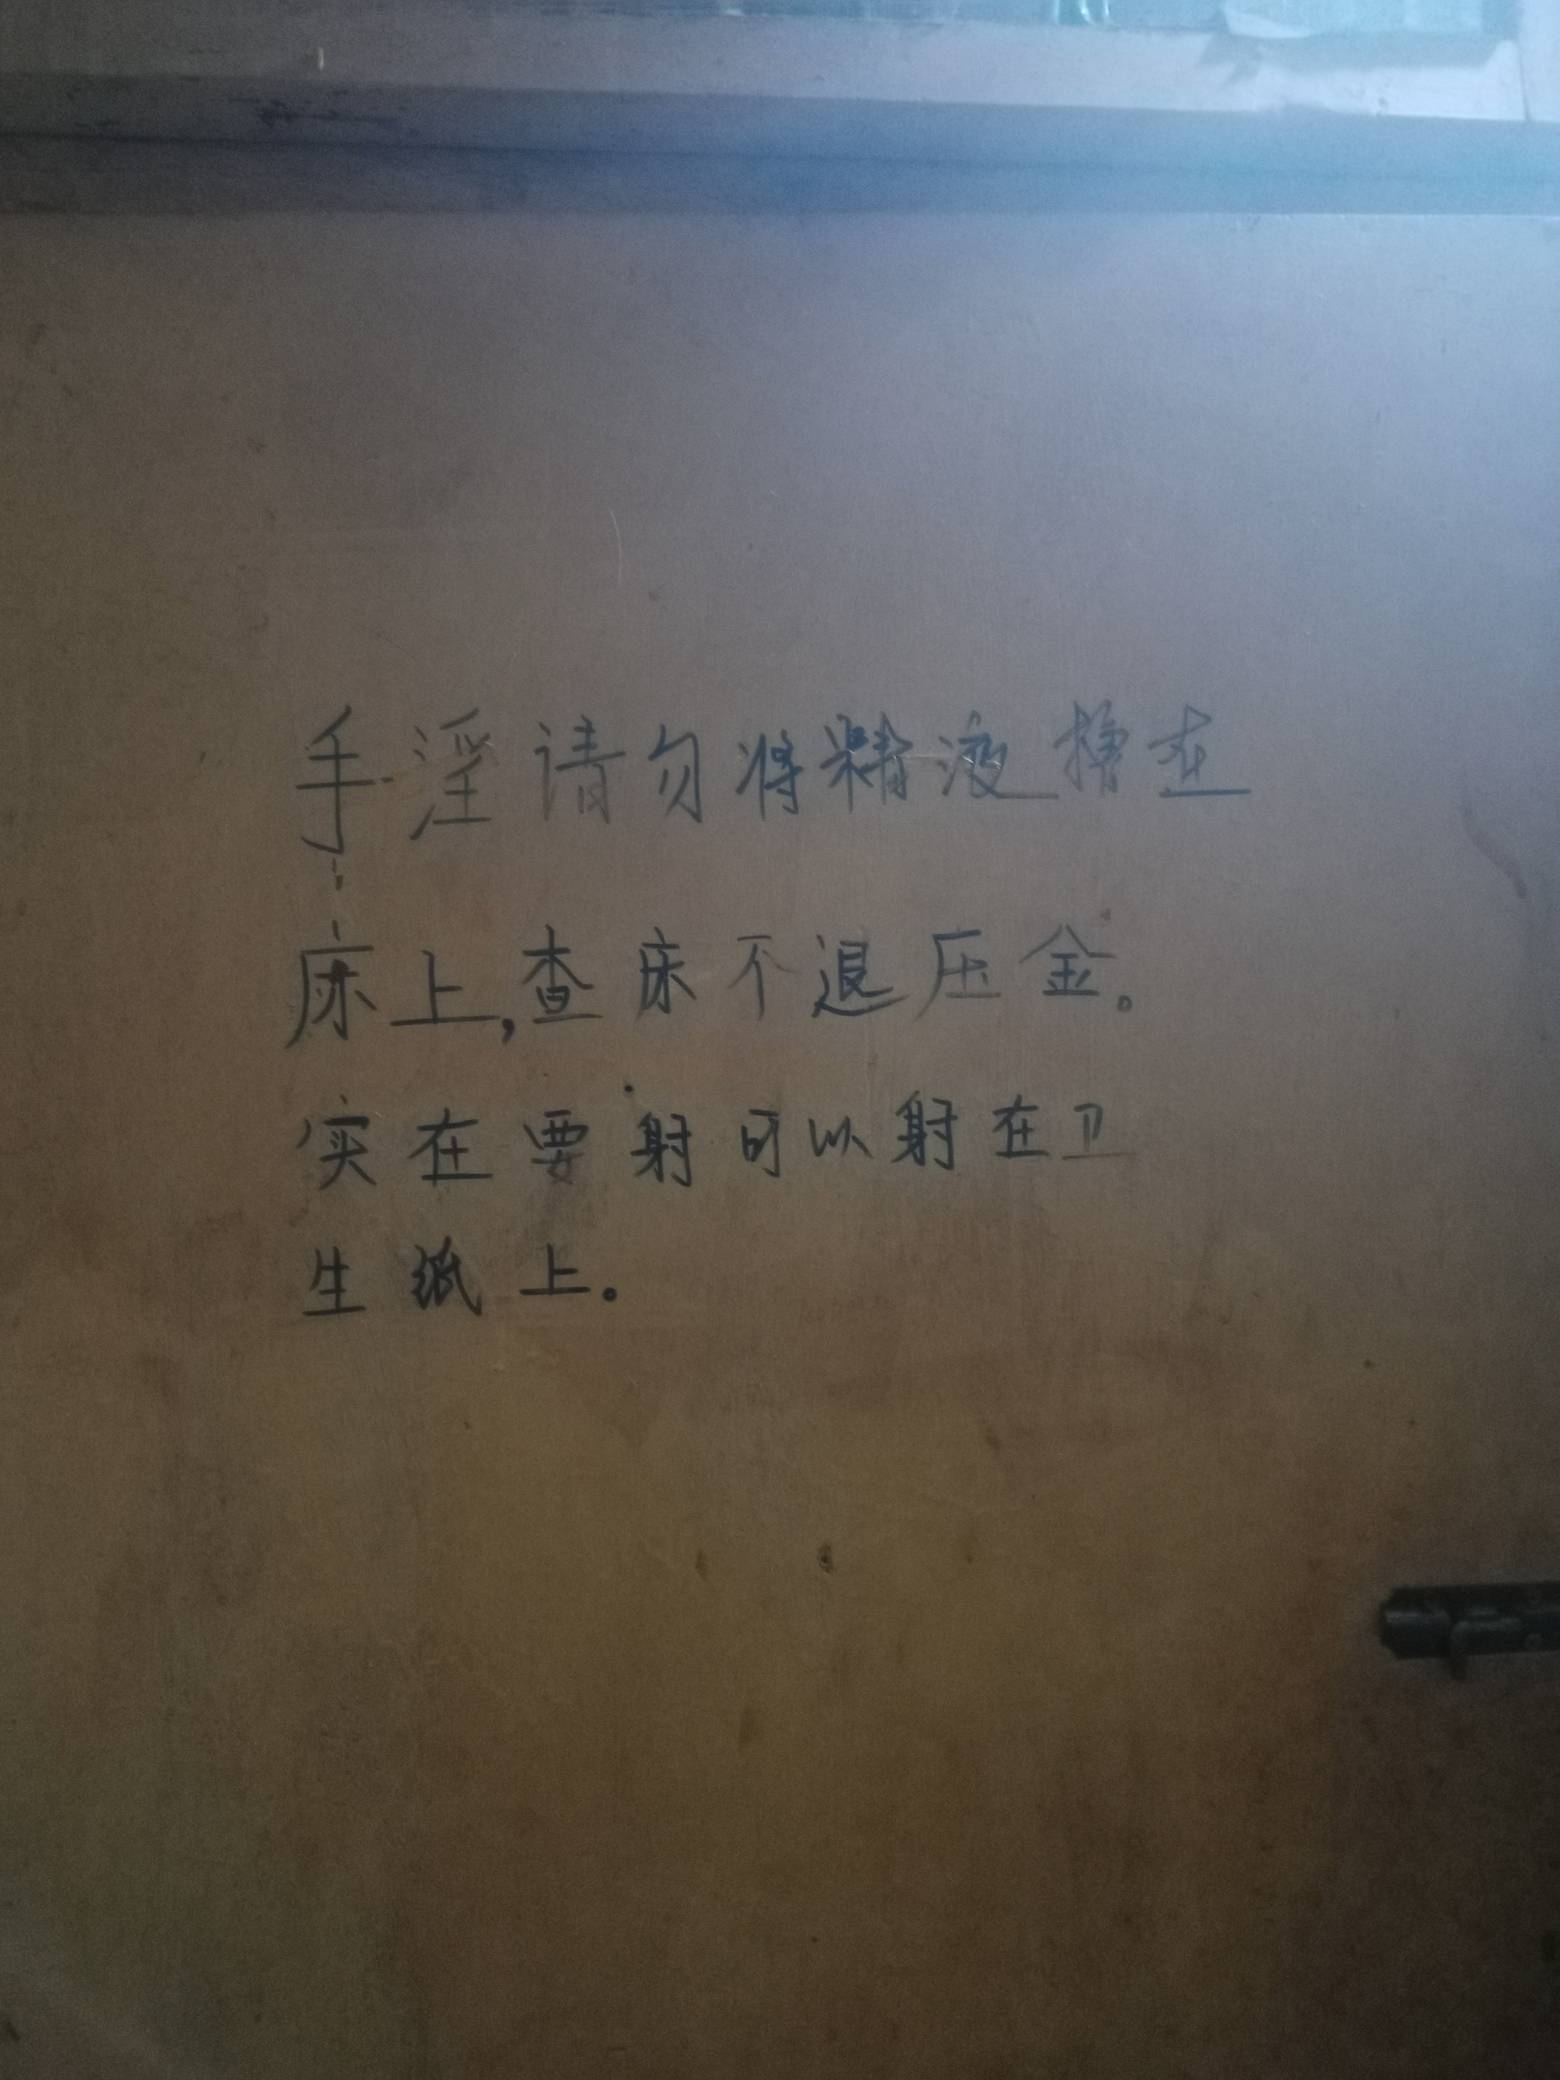 手淫请勿将精液撸在
床上,查床不退压金。
实在要射可以射在卫
生纸上。